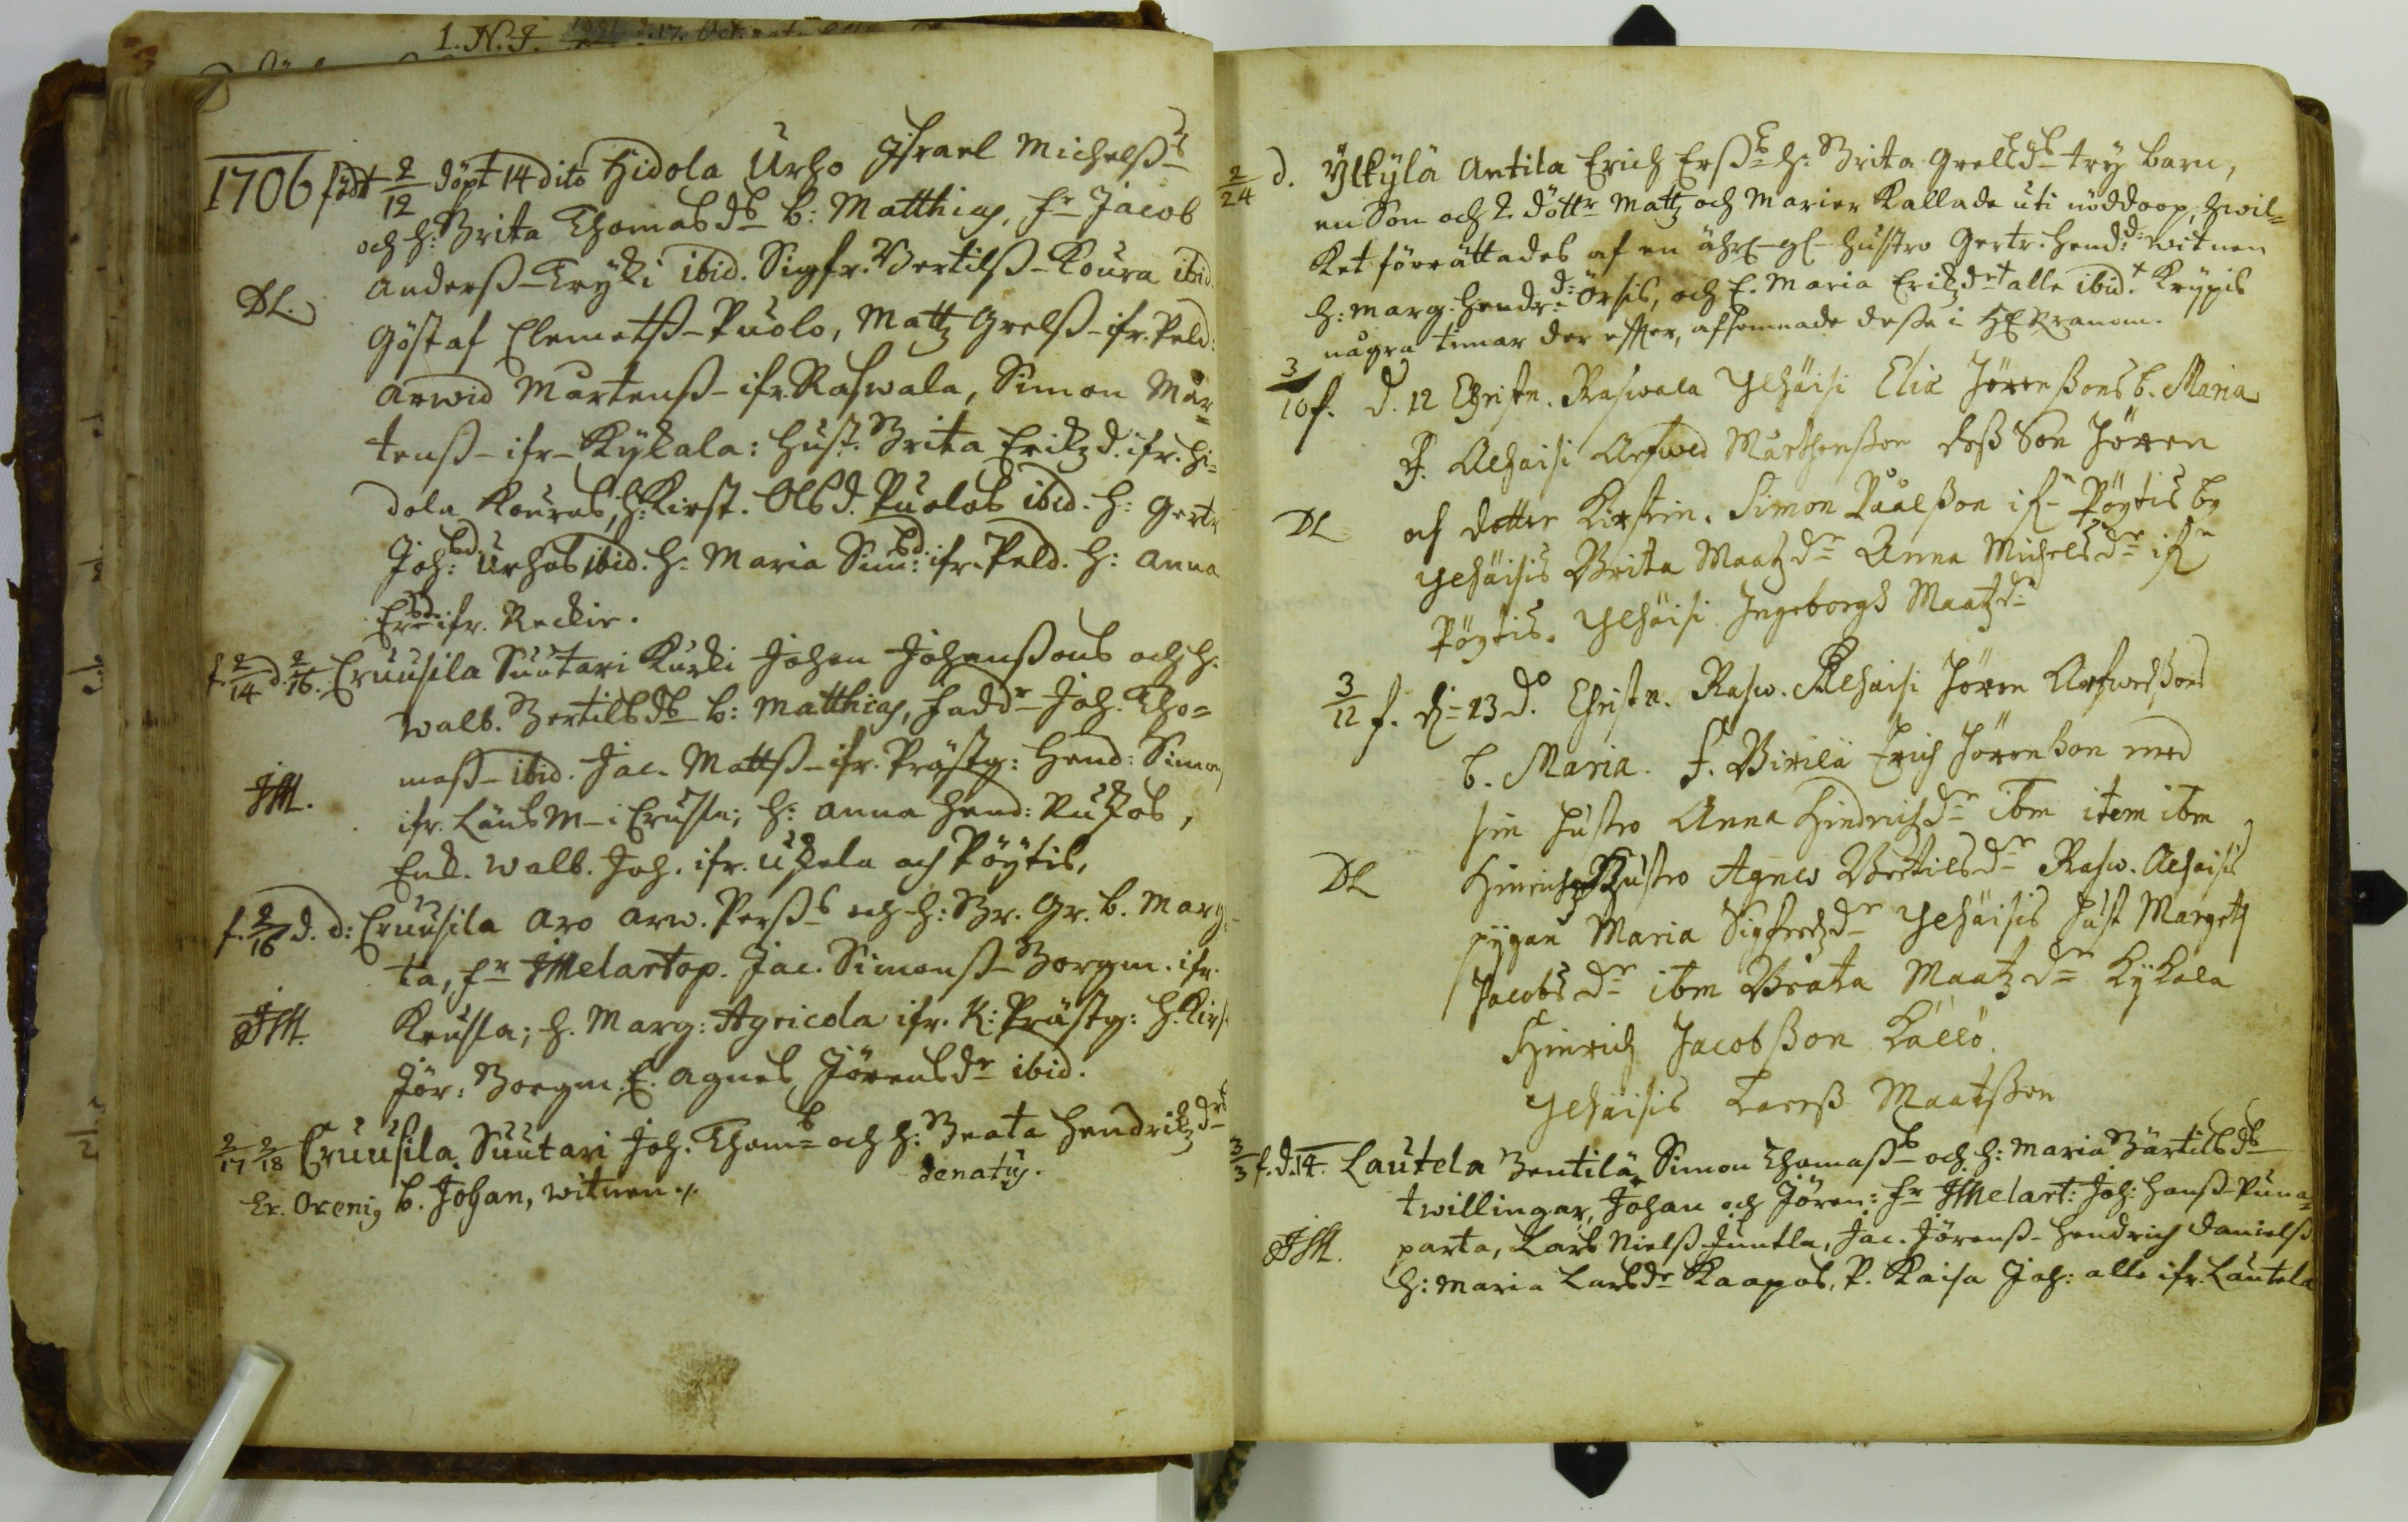 1. N. J.
1706 född 2/12 döpt 14 dito Hidola Urho Israel Michelß
och h: Brita Thomasds b: Matthias, fr Jacob
Anderß- ibid. Sigfr. Bertilß- Koura ibid.
DL.
Göstaf Clemetß- Puolo, Mattz Grelß- ifr. Peld:
Arwid Mårtenß- ifr. Raswala, Simon Mår=
tenß- ifr- Kykala: Hust. Brita Erikzd. ifr. Hi=
dola Kouras, h: Kirst. Olsd. Puolos ibid. h: Gertr
Joh: sd. Urhos ibid. h: Maria Sim: sd. ifr. Peld. h: Anna
Er sd. ifr.
f. 2/14 d. 2/16. Cruusila Suutari Johan Johanßons och h:
Walb. Bertilsds b: Matthias, fadd r Joh. Tho=
maß- ibid. Jac. Mattß- ifr. Prästg: Hend: Simon
JM.
ifr. Läns M- i ; h: Anna Hend: ,
Walb. Joh. ifr. och Pöÿtis,
f. 2/16 d. d: Cruusila Aro Arw. Perßs och h: Br. Gr. b. Marg=
ta, fr JMelartop. Jac. Simonß- Borgm. ifr.
JM.
; h. Marg: Agricola ifr. K: Prästg: h. Kirst
Jör: Borgm. E. Agnes Jörensdr ibid.
2/17 2/18 Cruusila Suutari Joh. Thoms och h: Beata Hendrikzdr
b. Johan, witnen denatus.
2/24 d. Ÿlkÿlä Antila Erich Erßs h: Brita Grelsds try barn,
en Son och 2. döttr Mattz och Marior kallade uti nöddoop, hwil=
ket förrättades af en hustro Gertr. Hend:d: witnen
h: Marg. Hendr:d: Orsis, och E. Maria Erikzdr alle ibid.
några timar der effter, afsomnade deße i HERranom.
3/10 f. d. 12 Christn. Raswala Ylhäisi Jörenßons b. Maria
F. Alhaisi Arfwed Mårthenßon deß Son Jören
DL
och dotter Kirstin. Simon Påålßon ifr Pöytis by
Ylhäisis Brita Maatzdr Anna Michelsdr ifr
Pöytis. Ylhäisi Ingeborgh Maatzdr
3/12 f. 13 do. Christn. Rasw. Alhaisi Jören Arfwedßons
b. Maria. F. Birilä Erich Jörenßon med
sin hustro Anna Hindrichzdr ibm item ibm
DL
Hinrichz Hustro Agnes Bertilsdr Rasw. Alhaisis
pygan Maria Sigfredzdr Ylhäisis hust Margetha
Jacobsdr ibm Beata Maatzdr Kykala
Hinrich Jacobßon Källö.
Ylhäisis Larß Maatßon
3/3 f. d. 14. Lautela Bentilä Simon Thomaßs och h: Maria Bärtilsds
twillingar, Johan och Jören: fr JMelart: Joh: Hanß- Puna=
JM.
parta, Lars Nielß Juntla, Jac. Jörenß- Hendrich Danielß
h: Maria Larsdr Kaapos, P. Kaisa Joh: alle ifr. Lautela